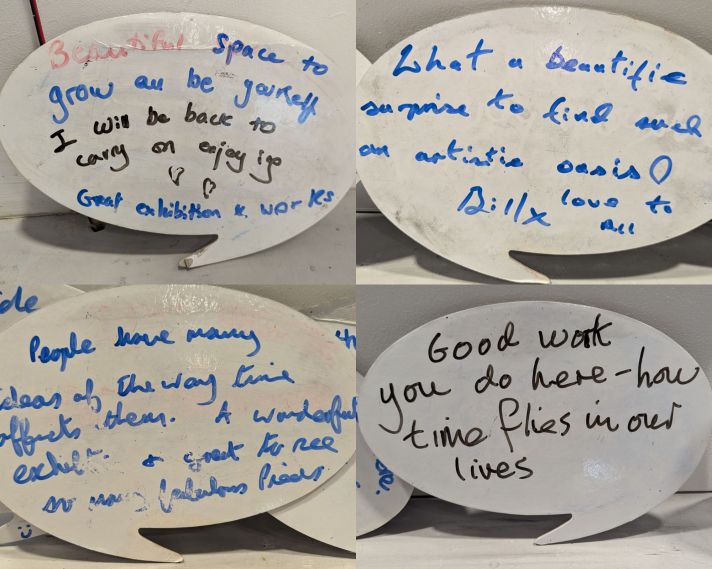 Beautiful space to
grow an be yourself
I will be back to
carry on enjoy igo
Great exhibition & works
What a beautific
surprise to find such
an artistic oasis
Billx love to
All
People have many
ideas of the way time
affects them. A wonderful
& great to see
so many fabulous Pieces
Good work
you do here - how
time flies in our
lives